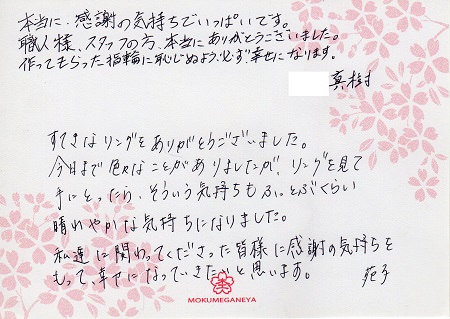 本当に、感謝の気持ちでいっぱいです。
職人様、スタッフの方、本当にありがとうございました。
作ってもらった指輪に恥じぬよう必ず幸せになります。
真樹
すてきなリングをありがとうございました。
今日まで色々なことがありましたが、リングを見て
手にとったら、そういう気持ちもふっとぶくらい
晴れやかな気持ちになりました。
私達に関わってくださった皆様に感謝の気持ちを
もって、幸せになっていきたいと思います。
苑子
MOKUMEGANEYA